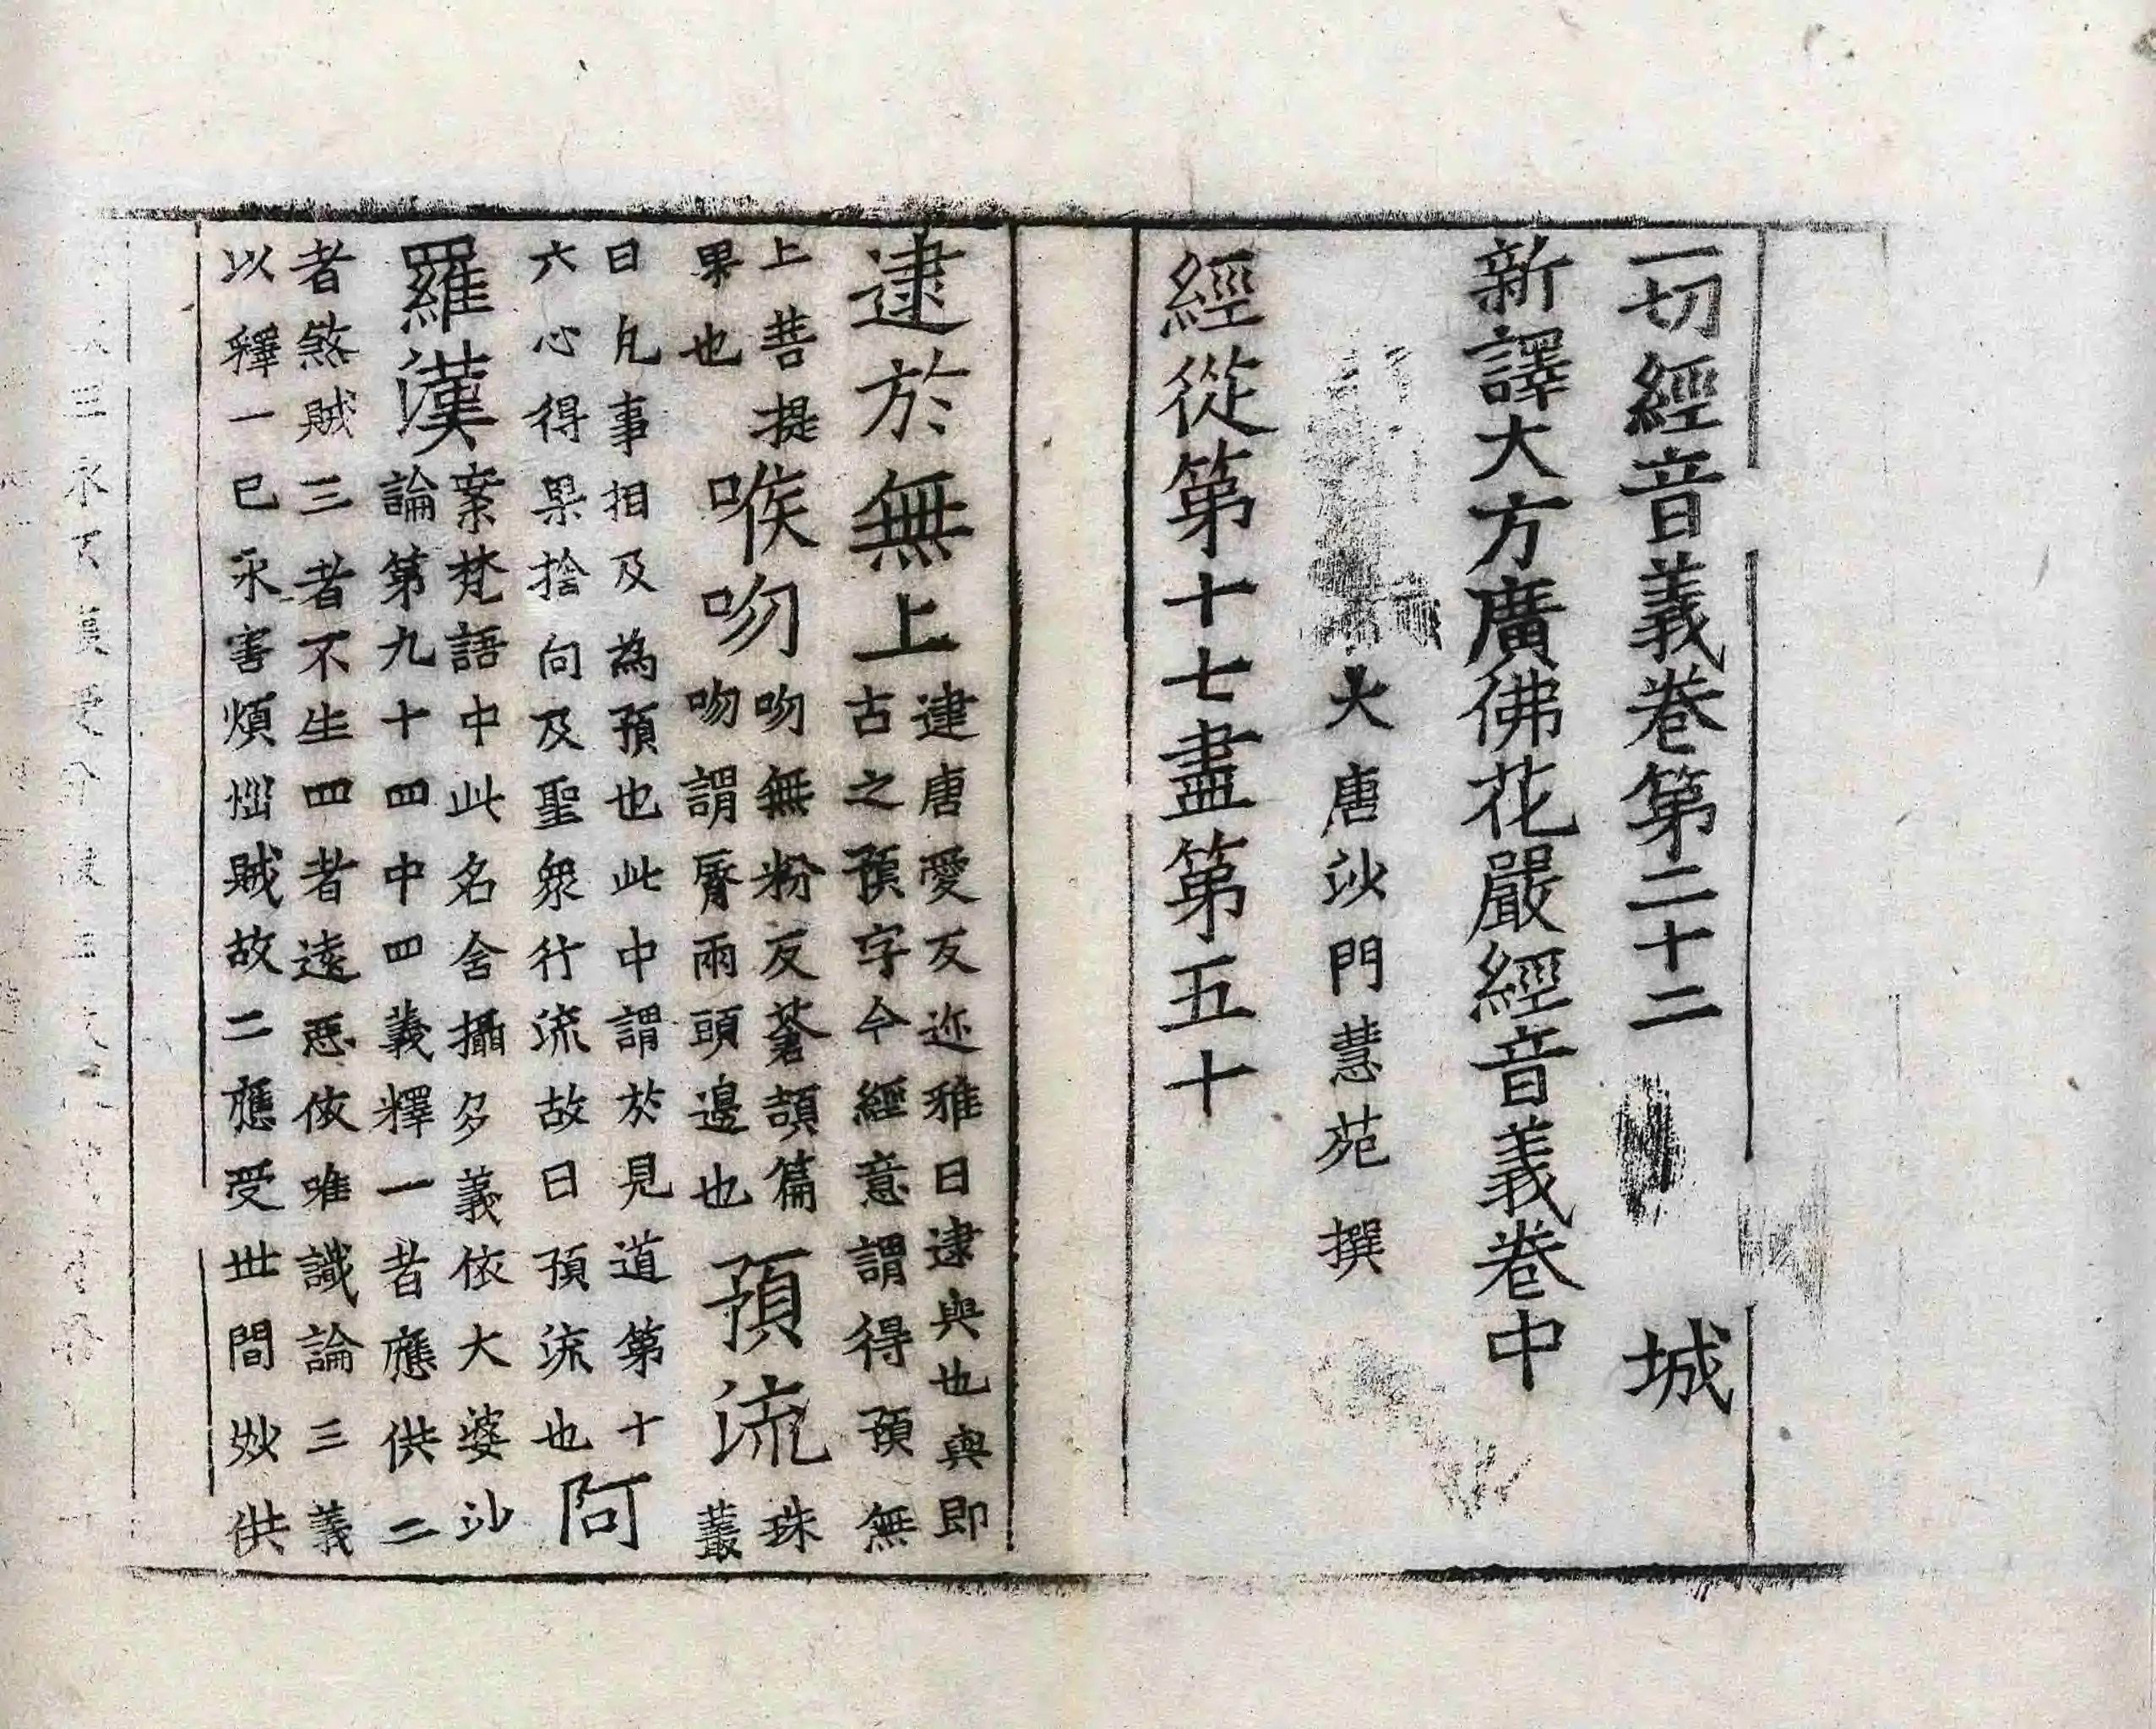 一切經音義卷第二十二 城
新譯大方廣佛花嚴經音義卷中
大唐沙門慧苑 撰
經從第十七盡第五十
逮於無上逮唐愛反迩雅曰逮與也與即古之預字今經意謂得預無
上菩提果也 喉吻吻無粉反蒼頡篇吻謂脣兩頭邊也 預流珠叢
曰凡事相及為預也此中謂於見道第十六心得果捨向及聖衆行流故曰預流也 阿
羅漢案梵語中此名含攝多義依大婆沙論第九十四中四義釋一者應供二
者煞賊三者不生四者遠惡依唯識論三義以釋一已永害煩惱賊故二應受世間妙供